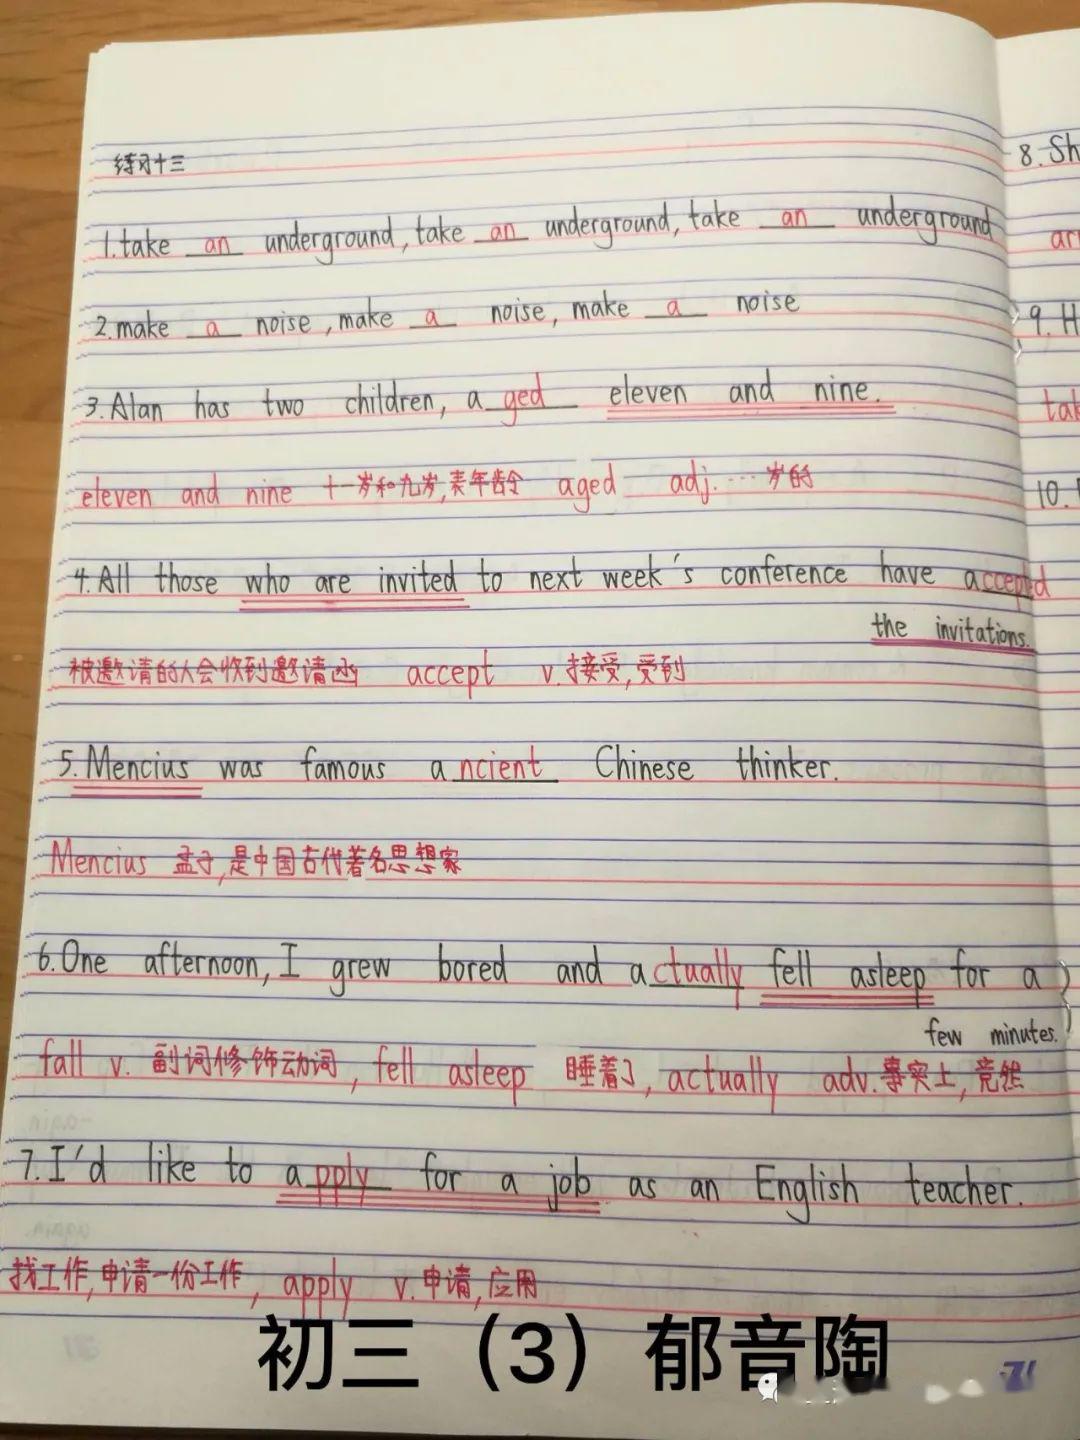 练习十三
1.take an underground, take an underground, take an underground
2.make a noise, make a noise, make a noise
3.Alan has two children, aged eleven and nine.
eleven and nine 十一岁和九岁,表年龄 aged adj.…岁的
4.All those who are invited to next week's conference have accepted
the invitations.
被邀请的人会收到邀请函 accept v.接受,受到
5.Mencius was famous ancient Chinese thinker.
Mencius 孟子,是中国古代著名思想家
6.One afternoon, I grew bored and actually fell asleep for a
few minutes.
fall v. 副词修饰动词, fell asleep 睡着了, actually adv.事实上,竟然
7.I'd like to apply for a job as an English teacher.
找工作,申请一份工作, apply v.申请,应用
8.Sh
9.H
10.
初三（3）郁音陶